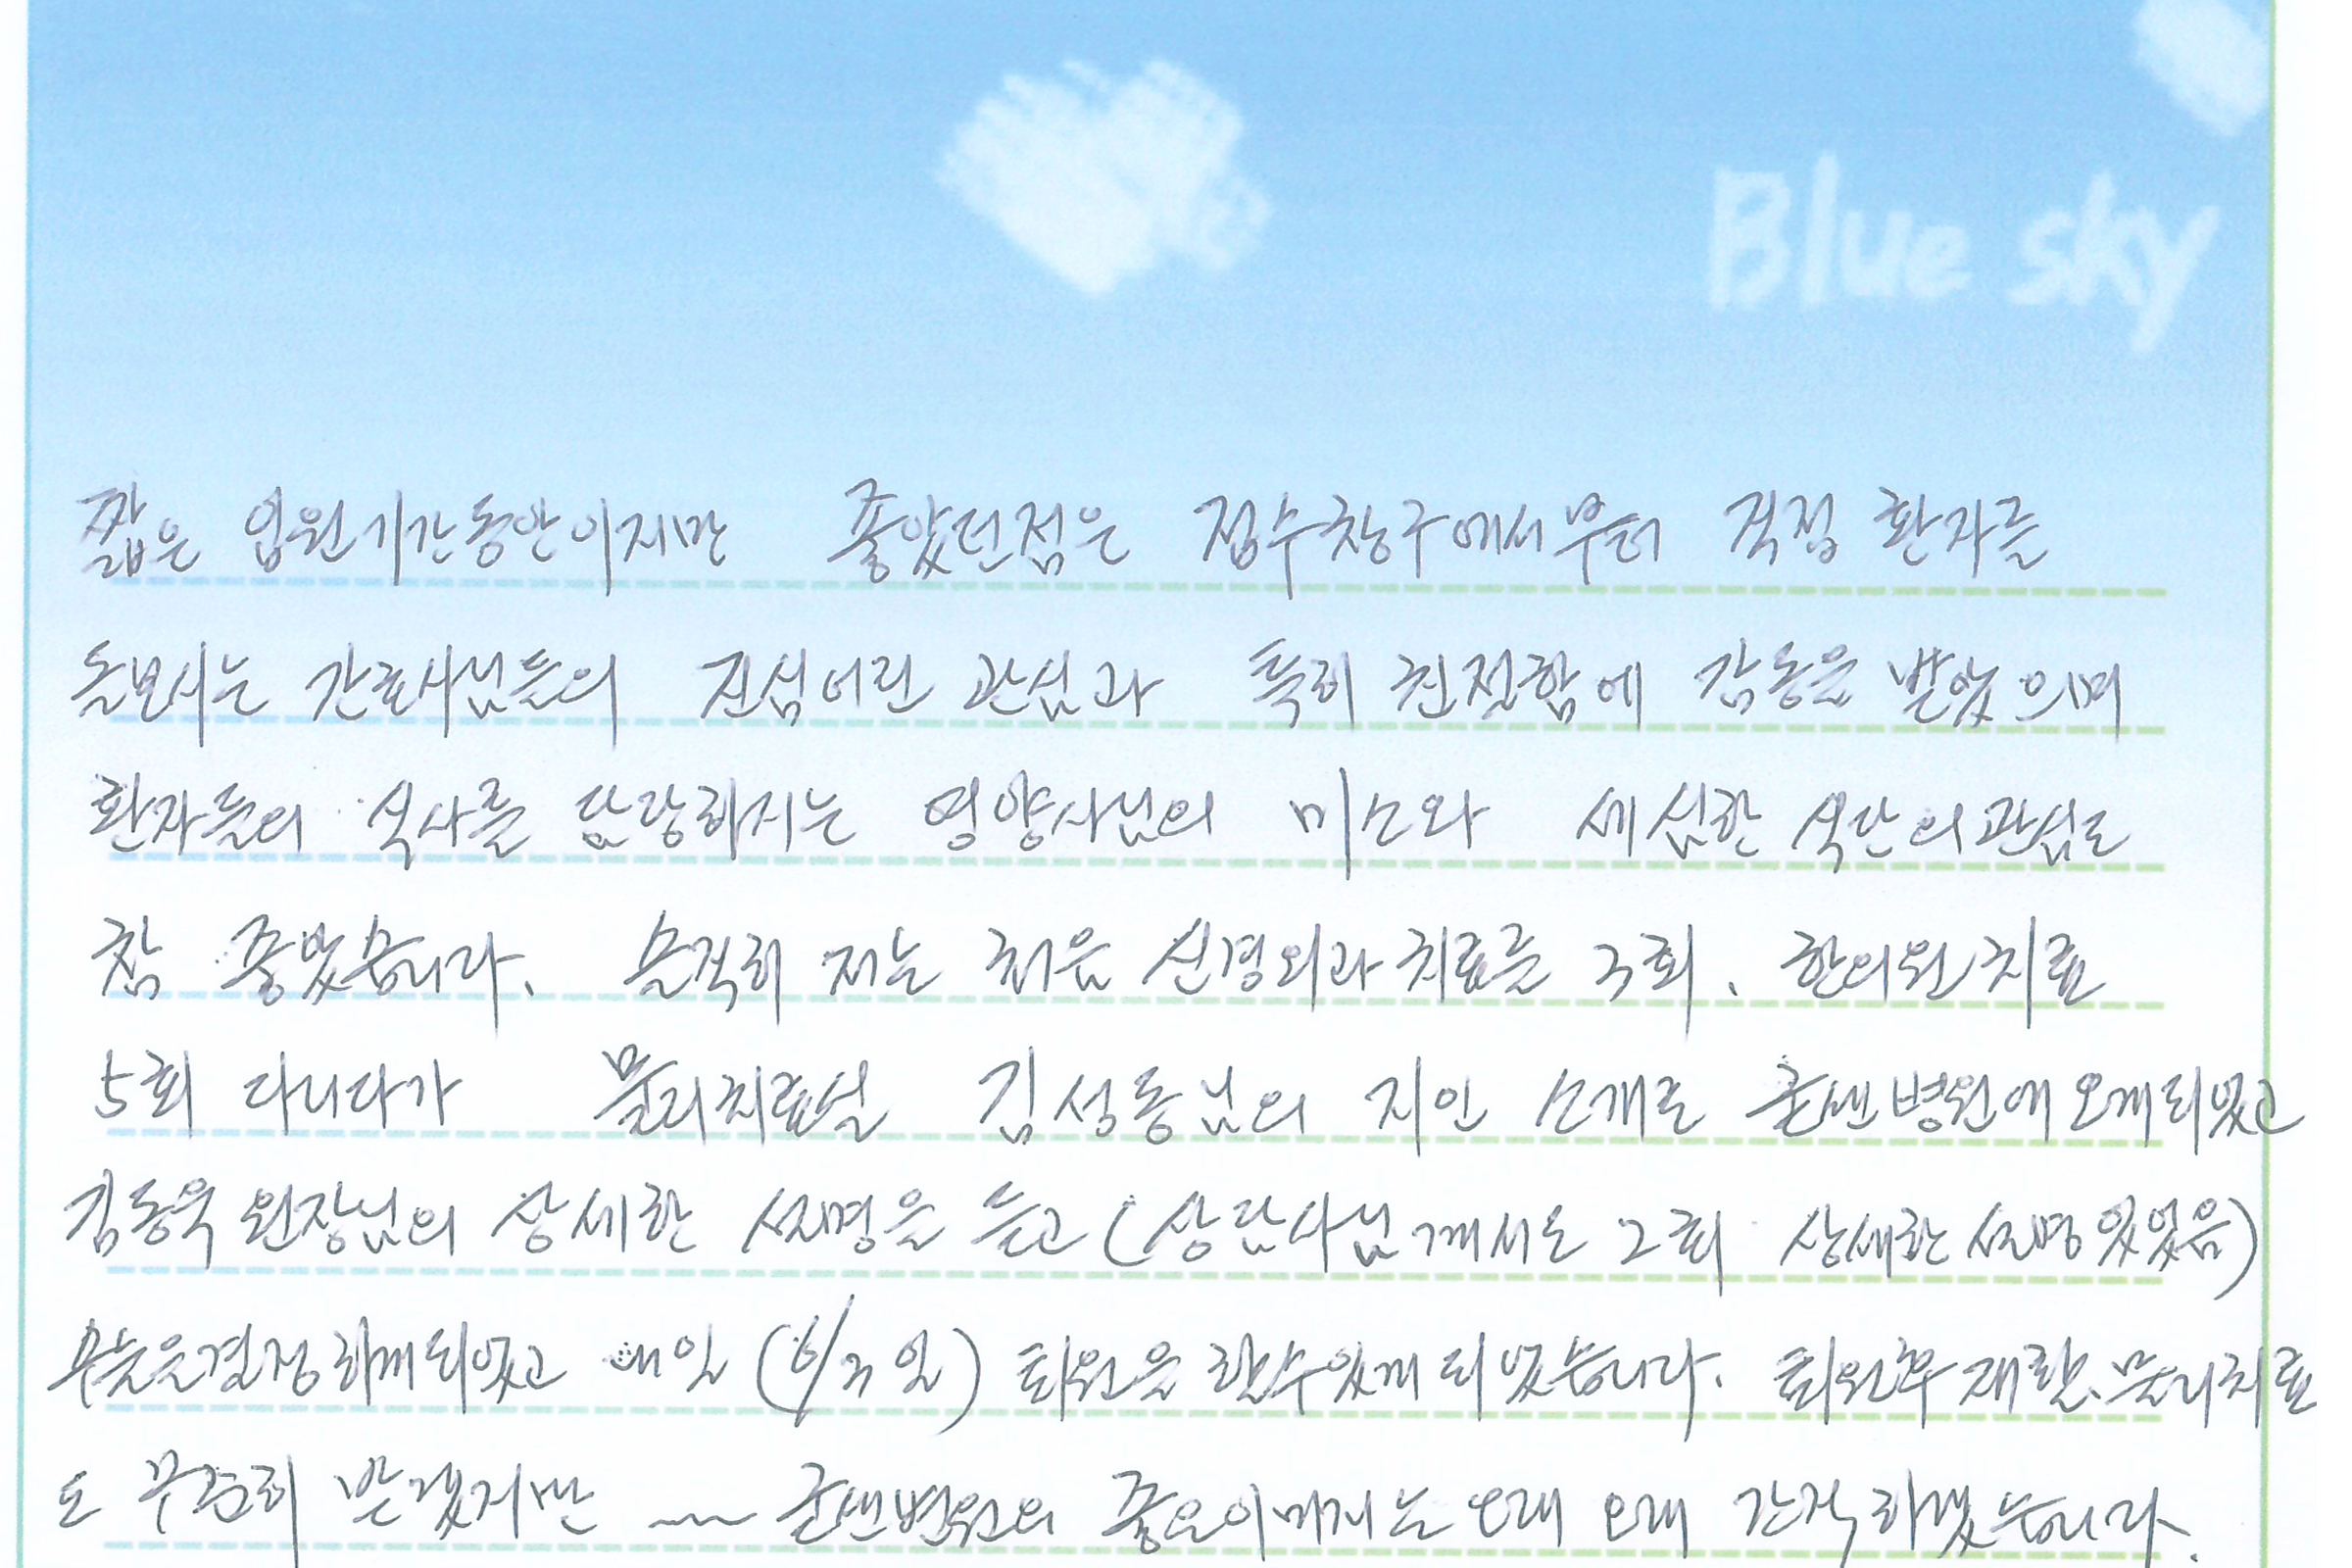 Blue sky
짧은 입원기간동안이지만 좋았던점은 접수창구에서부터 걱정 환자를
돌보시는 간호사님들의 진심어린 관심과 특히 친절함에 감동을 받았으며
환자들의 식사를 담당하시는 영양사님의 미소와 세심한 식단의관심도
참 좋았습니다. 솔직히 저는 처음 신경외과치료를 3회. 한의원치료
5회 다니다가 물리치료실 김성동님의 지인 소개로 굳센병원에오게되었고
김동욱 원장님의 상세한 설명을 듣고 (상담사님께서도 2회 상세한 설명 있었음)
수술을결정하게되었고 내일 (6/3일) 퇴원을 할수있게 되었습니다. 퇴원후 재활.물리치료
도 꾸준히 받겠지만 ~~ 굳센병원의 좋은이미지는 오래 오래 간직하겠습니다.